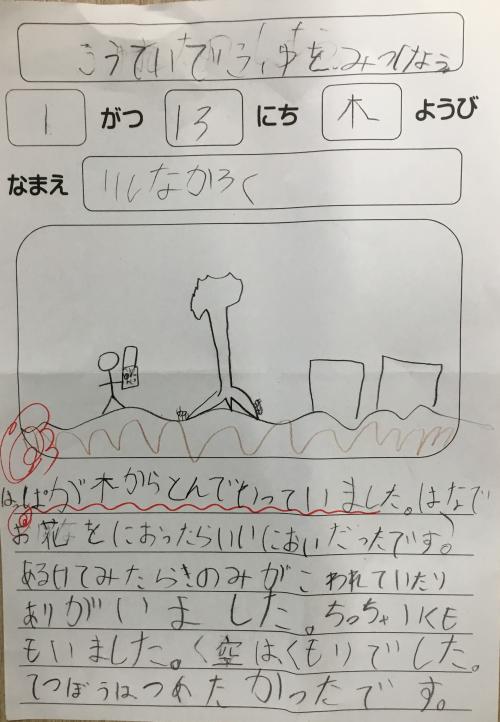 こうていでう,ゆをみつけよう
1 がつ 13 にち 木 ようび
なまえ
はっぱが木からとんでいっていました。はなで
お花をにおったらいいにおいだったです。
あるけてみたらきのみがこわれていたり
ありがいました。ちっちゃいKE
もいました。く空はくもりでした。
てつぼうはつめたかったです。